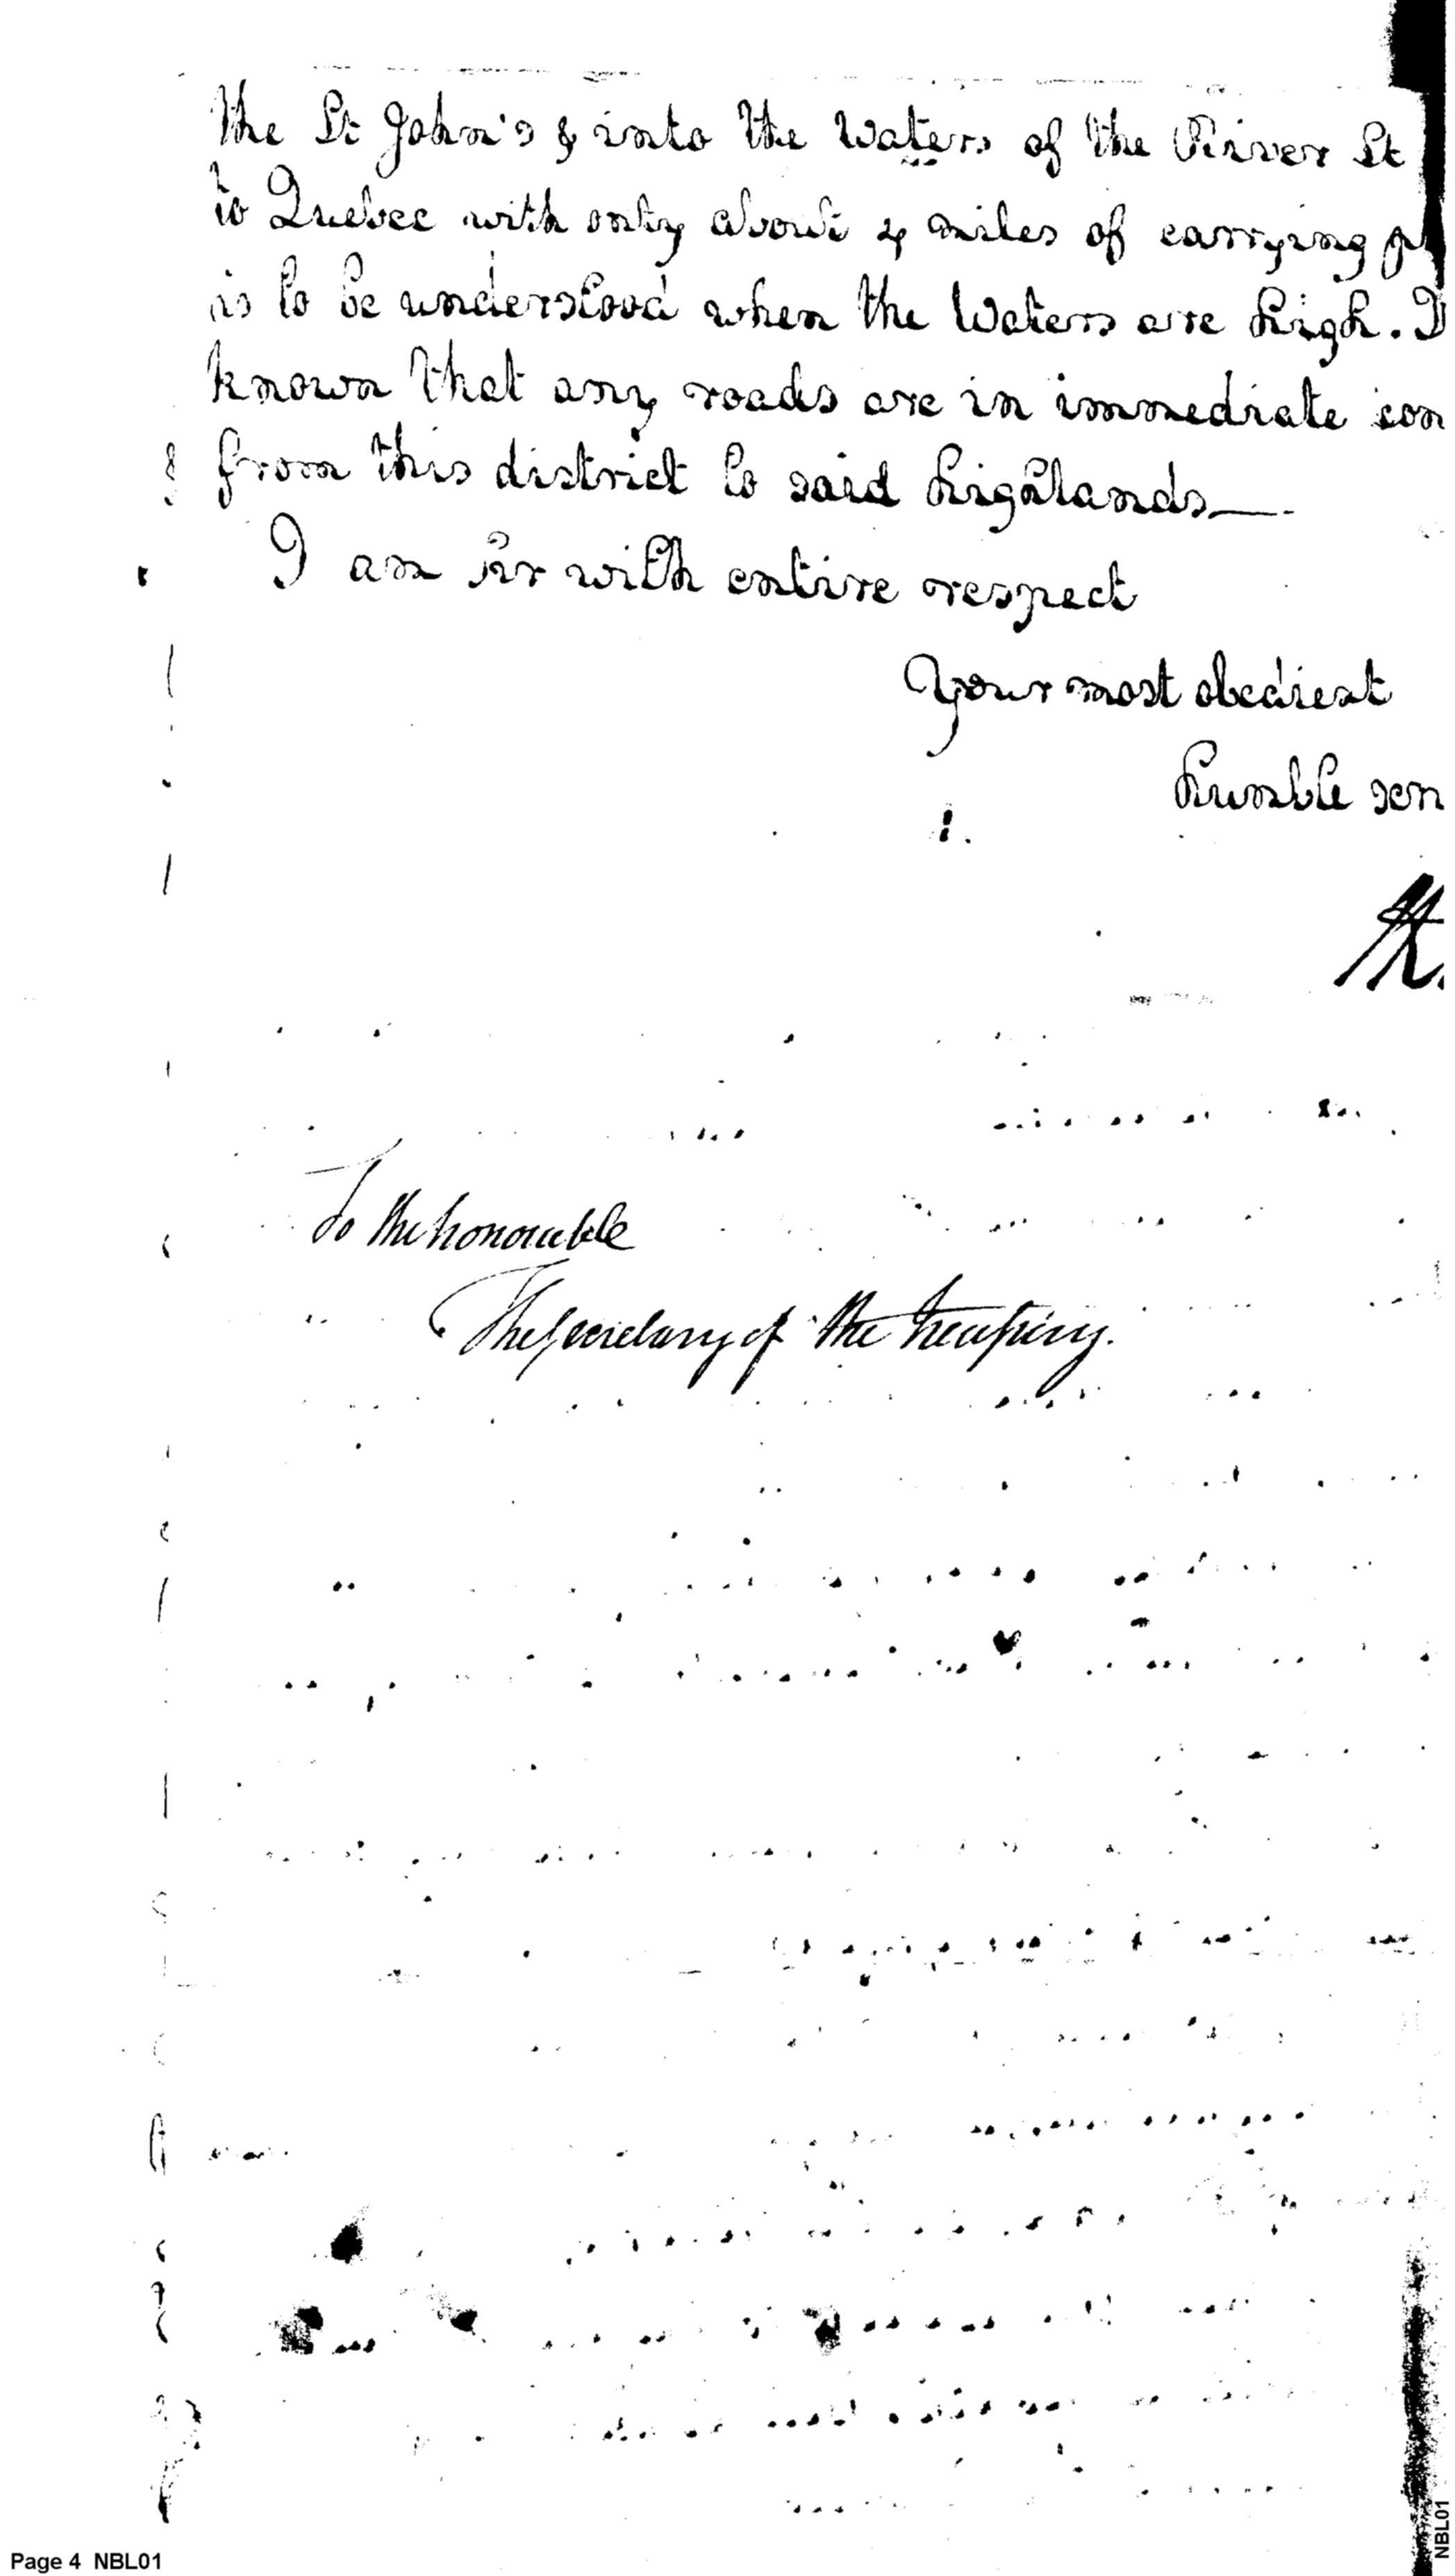 the St John's & into the Waters of the River St
to Quebec with only about 4 miles of carrying pl
is to be understood when the Waters are high. I
known that any roads are in immediate con
from this district to said highlands—
I am Sir with entire respect
Your most obedient
humble serv
To the honourable
The secretary of the treasury.
Page 4 NBL01
NBL01